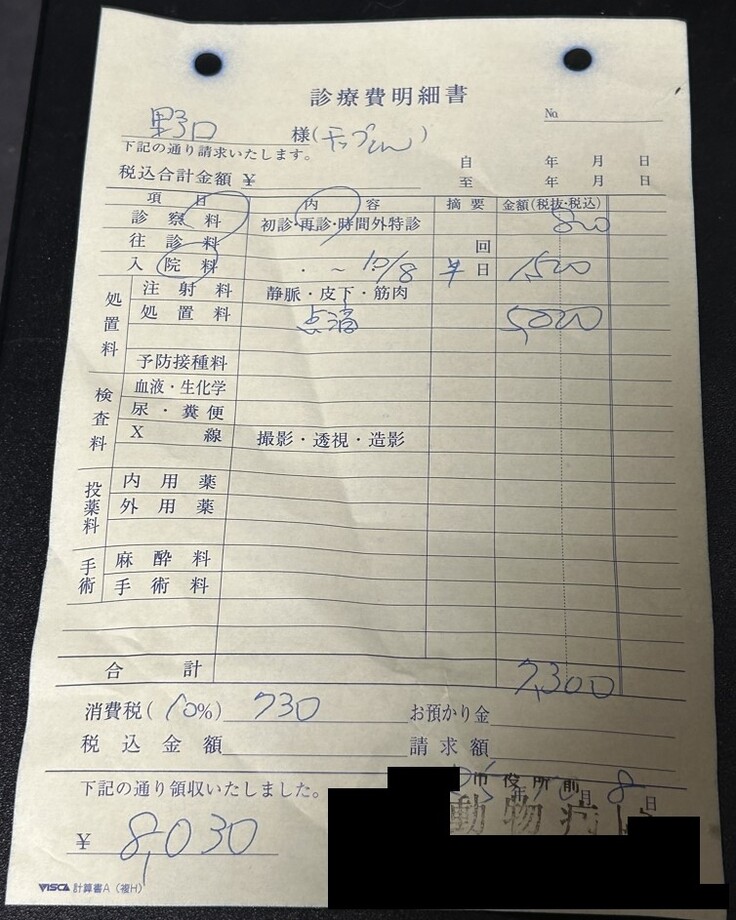 診療費明細書
№
野口 様(チップくん)
下記の通り請求いたします。
自 年 月 日
税込合計金額 ¥
至 年 月 日
項 目 内 容 摘 要 金額(税抜・税込)
診 察 料 初診・再診・時間外特診 800
往 診 料 回
入 院 料 ・ ~ 10/8 半 日 1,500
処置料
注 射 料 静脈・皮下・筋肉
処 置 料 点滴 5,000
予防接種料
検査料
血液・生化学
尿・糞便
X 線 撮影・透視・造影
投薬料
内 用 薬
外 用 薬
手術
麻 酔 料
手 術 料
合 計 7,300
消費税(10%) 730 お預かり金
税 込 金 額 請 求 額
下記の通り領収いたしました。
市役所前
年 10月 8日
動物病
¥ 8,030
VISCA 計算書A(複H)